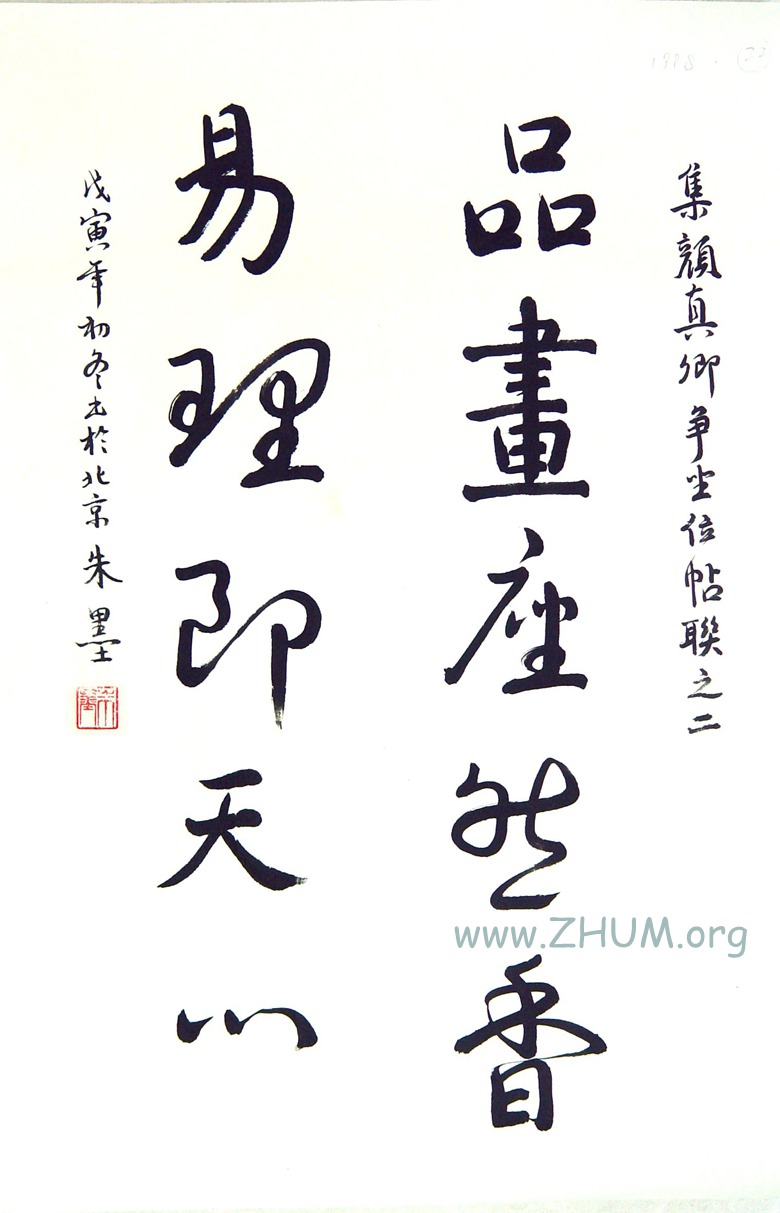 1998 . 23
集顏真卿争坐位帖聯之二
品畫座然香
易理即天心
戊寅年初冬书於北京 朱墨
朱墨
www.ZHUM.org